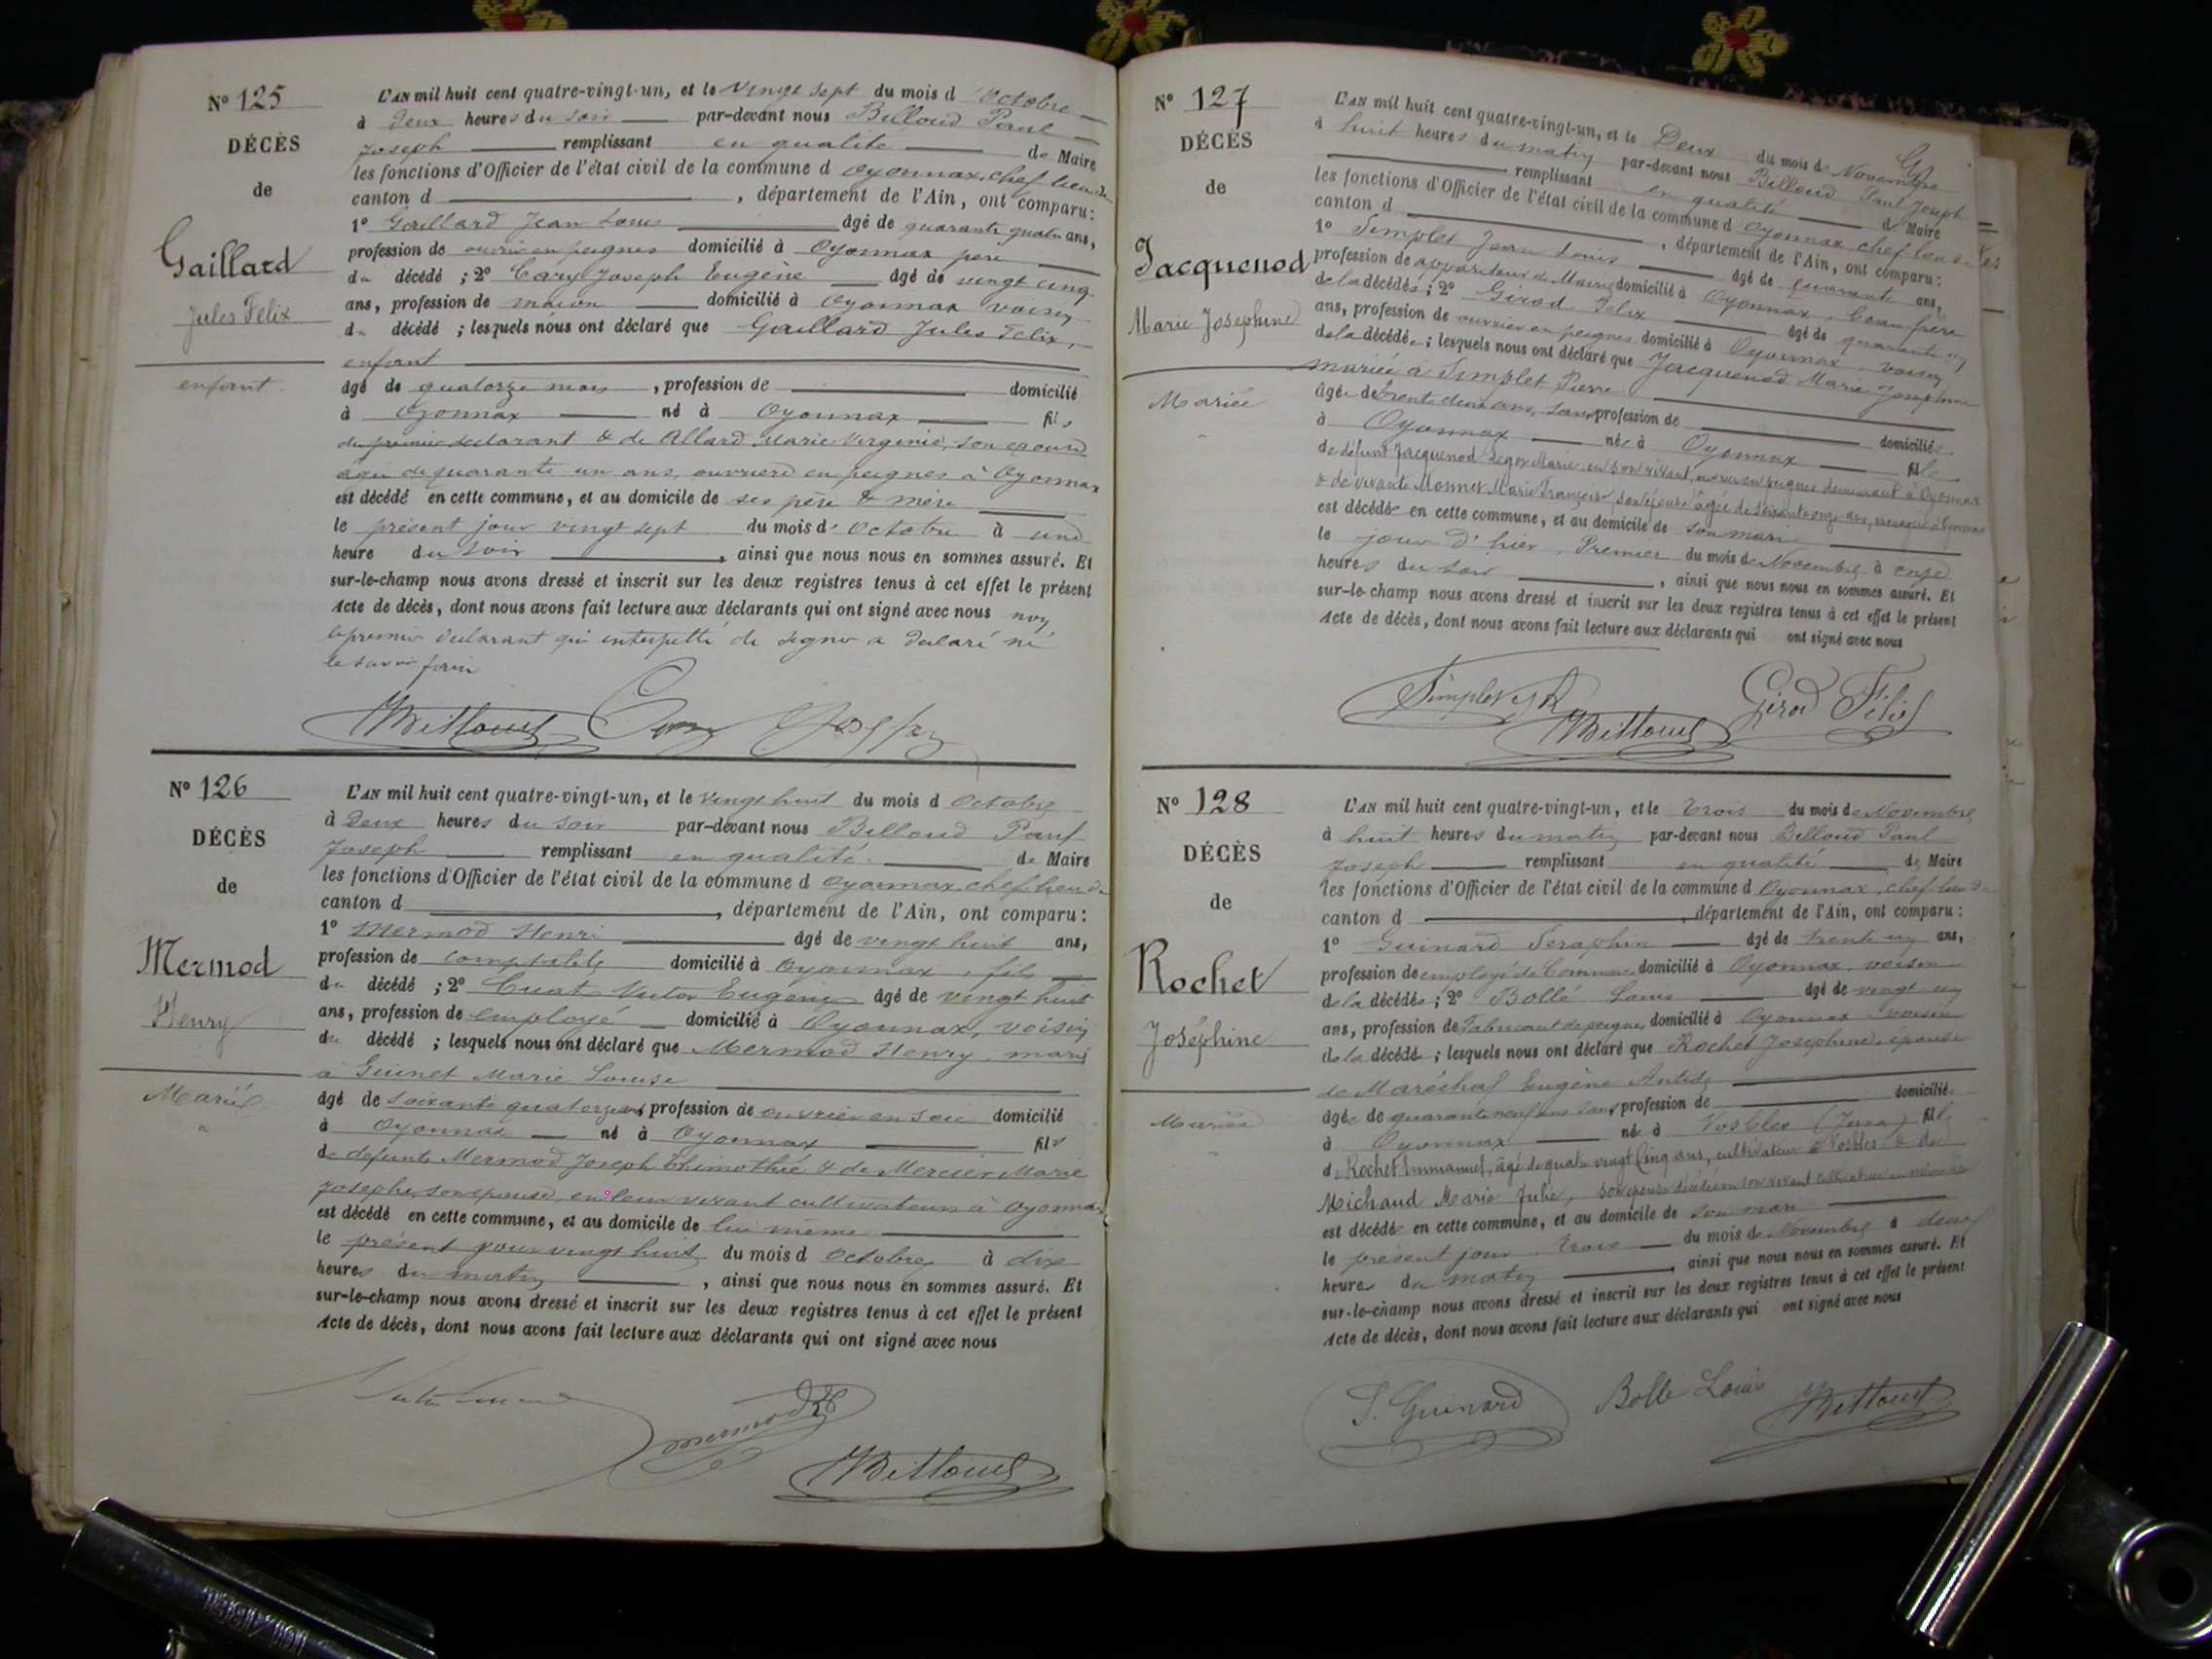 N° 125
DÉCÈS
de
Gaillard
Jules Félix
enfant.
L'AN mil huit cent quatre-vingt-un, et le vingt sept du mois d'Octobre
à deux heures du soir par-devant nous Billoud Paul
Joseph remplissant en qualité de Maire
les fonctions d'Officier de l'état civil de la commune d'Oyonnax, chef lieu de
canton d , département de l'Ain, ont comparu:
1° Gaillard Jean Louis âgé de quarante quatre ans,
profession de ouvrier en peignes domicilié à Oyonnax père
du décédé ; 2° Cary Joseph Eugène âgé de vingt cinq
ans, profession de maçon domicilié à Oyonnax voisin
du décédé ; lesquels nous ont déclaré que Gaillard Jules Félix,
enfant
âgé de quatorze mois , profession de domicilié
à Oyonnax né à Oyonnax fils
du premier déclarant & de Allard Marie Virginie, son épouse
âgée de quarante un ans, ouvrière en peignes à Oyonnax
est décédé en cette commune, et au domicile de ses père & mère
le présent jour vingt sept du mois d'Octobre à une
heure du soir , ainsi que nous nous en sommes assuré. Et
sur-le-champ nous avons dressé et inscrit sur les deux registres tenus à cet effet le présent
Acte de décès, dont nous avons fait lecture aux déclarants qui ont signé avec nous non
le premier déclarant qui interpellé de signer a déclaré ne
le savoir faire
Billoud Cary Joseph
N° 126
DÉCÈS
de
Mermod
Henry
Marié
L'AN mil huit cent quatre-vingt-un, et le vingt huit du mois d Octobre
à deux heures du soir par-devant nous Billoud Paul
Joseph remplissant en qualité de Maire
les fonctions d'Officier de l'état civil de la commune d Oyonnax, chef lieu de
canton d , département de l'Ain, ont comparu:
1° Mermod Henri âgé de vingt huit ans,
profession de comptable domicilié à Oyonnax, fils
du décédé ; 2° Cuat Victor Eugène âgé de vingt huit
ans, profession de employé domicilié à Oyonnax, voisin
du décédé ; lesquels nous ont déclaré que Mermod Henry, marié
à Guinet Marie Louise
âgé de soixante quatorze ans, profession de ouvrier en soie domicilié
à Oyonnax né à Oyonnax fils
de défunts Mermod Joseph Thimothée & de Mercier Marie
Josephe, son épouse, en leur vivant cultivateurs à Oyonnax
est décédé en cette commune, et au domicile de lui même
le présent jour vingt huit du mois d Octobre à dix
heures du matin , ainsi que nous nous en sommes assuré. Et
sur-le-champ nous avons dressé et inscrit sur les deux registres tenus à cet effet le présent
Acte de décès, dont nous avons fait lecture aux déclarants qui ont signé avec nous
Mermod
Billoud
N° 127
DÉCÈS
de
Jacquenod
Marie Joséphine
Mariée
L'AN mil huit cent quatre-vingt-un, et le Deux du mois de Novembre
à huit heures du matin par-devant nous Billoud Paul Joseph
remplissant en qualité de Maire
les fonctions d'Officier de l'état civil de la commune d Oyonnax chef lieu de
canton d , département de l'Ain, ont comparu:
1° Simplet Jean Louis âgé de quarante ans,
profession de appariteur de Mairie domicilié à Oyonnax, beau frère
de la décédée ; 2° Girod Félix âgé de quarante un
ans, profession de ouvrier en peignes domicilié à Oyonnax, voisin
de la décédée ; lesquels nous ont déclaré que Jacquenod Marie Joséphine
mariée à Simplet Pierre
âgée de trente deux ans, sans profession de domiciliée
à Oyonnax née à Oyonnax fille
de défunt Jacquenod Léger Marie en son vivant, ouvrier en peignes demeurant à Oyonnax
& de vivante Monnet Marie Françoise, son épouse âgée de soixante onze ans, ménagère à Oyonnax
est décédée en cette commune, et au domicile de son mari
le jour d'hier, Premier du mois de Novembre à onze
heures du soir , ainsi que nous nous en sommes assuré. Et
sur-le-champ nous avons dressé et inscrit sur les deux registres tenus à cet effet le présent
Acte de décès, dont nous avons fait lecture aux déclarants qui ont signé avec nous
Simplet Girod Félix
Billoud
N° 128
DÉCÈS
de
Rochet
Joséphine
Mariée
L'AN mil huit cent quatre-vingt-un, et le Trois du mois de Novembre
à huit heures du matin par-devant nous Billoud Paul
Joseph remplissant en qualité de Maire
les fonctions d'Officier de l'état civil de la commune d Oyonnax, chef lieu de
canton d , département de l'Ain, ont comparu:
1° Guinard Séraphin âgé de trente un ans,
profession de employé de Commerce domicilié à Oyonnax, voisin
de la décédée ; 2° Bollé Louis âgé de vingt un
ans, profession de Fabricant de peignes domicilié à Oyonnax voisin
de la décédée ; lesquels nous ont déclaré que Rochet Joséphine, épouse
de Maréchal Eugène Antide
âgée de quarante neuf ans sans profession de domiciliée
à Oyonnax née à Vosbles (Jura) fille
de Rochet Emmanuel, âgé de quatre vingt cinq ans, cultivateur à Vosbles & de
Michaud Marie Julie, son épouse décédée en son vivant cultivatrice
est décédée en cette commune, et au domicile de son mari
le présent jour, trois du mois de Novembre à deux
heures du matin , ainsi que nous nous en sommes assuré. Et
sur-le-champ nous avons dressé et inscrit sur les deux registres tenus à cet effet le présent
Acte de décès, dont nous avons fait lecture aux déclarants qui ont signé avec nous
S. Guinard Bolle Louis Billoud